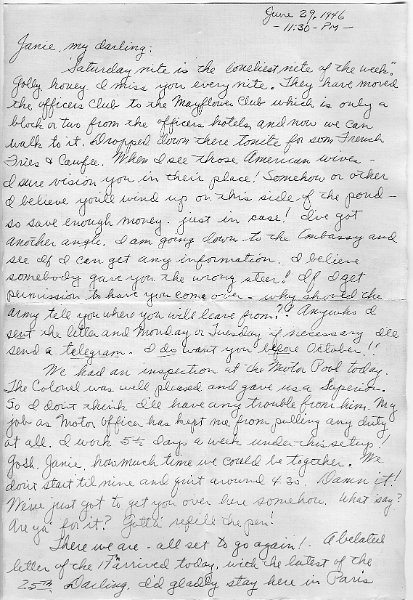 June 29, 1946
- 11:30 - PM -
Janie, my darling:
"Saturday nite is the loneliest nite of the week".
Golly honey I miss you every nite. They have moved
the officers Club to the Mayflower Club which is only a
block or two from the officers hotels and now we can
walk to it. Dropped down there tonite for som French
Fries & Cawfee. When I see those American wives -
I sure vision you in their place! Somehow or other
I believe you'll wind up on this side of the pond -
so save enough money - just in case! I've got
another angle. I am going down to the Embassy and
see if I can get any information. I believe
somebody gave you the wrong steer! If I get
permission to have you come over - why should the
army tell you where you will leave from?? Anywho I
sent the letter and Monday or Tuesday if necessary I'll
send a telegram. I do want you before October!!
We had an inspection at the Motor Pool today.
The Colonel was well pleased and gave us a Superior.
So I don't think I'll have any trouble from him. My
job as Motor officer has kept me from pulling any duty
at all. I work 5½ days a week under this setup.
Gosh, Janie, how much time we could be together. We
don't start til nine and quit around 4:30. Damn it!
We've just got to get you over here somehow. What say?
Are ya for it? Gotta refill the pen!
There we are - all set to go again! A belated
letter of the 17th arrived today, with the latest of the
25th. Darling, I'd gladly stay here in Paris